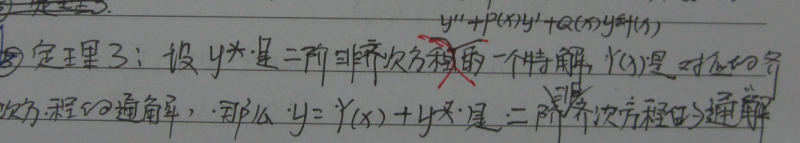 y''+P(x)y'+Q(x)y=f(x)
③定理3：设y*是二阶非齐次方程的一个特解，Y(x)是对应的齐
次方程的通解，那么y=Y(x)+y*是二阶非齐次方程的通解